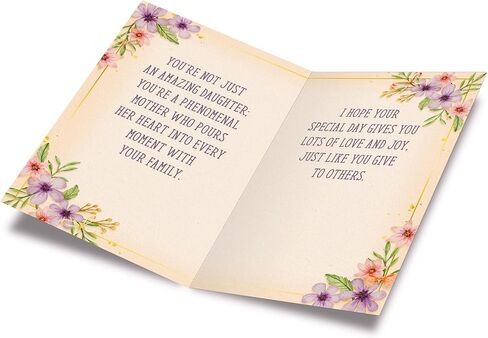 YOU'RE NOT JUST
AN AMAZING DAUGHTER:
YOU'RE A PHENOMENAL
MOTHER WHO POURS
HER HEART INTO EVERY
MOMENT WITH
YOUR FAMILY.
I HOPE YOUR
SPECIAL DAY GIVES YOU
LOTS OF LOVE AND JOY,
JUST LIKE YOU GIVE
TO OTHERS.